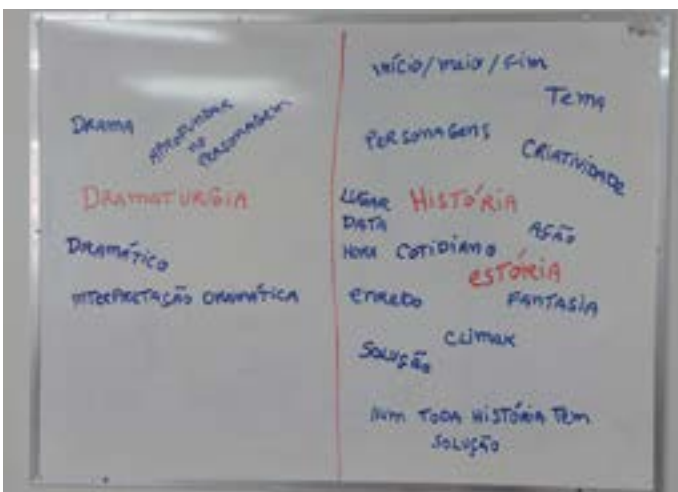 DRAMA
APROFUNDAR
NO
PERSONAGEM
DRAMATURGIA
DRAMÁTICO
INTERPRETAÇÃO DRAMÁTICA
INÍCIO/MEIO/FIM
TEMA
PERSONAGENS
CRIATIVIDADE
LUGAR HISTÓRIA
DATA AÇÃO
HORA COTIDIANO
ESTÓRIA
ENREDO FANTASIA
CLIMAX
SOLUÇÃO
NEM TODA HISTÓRIA TEM
SOLUÇÃO